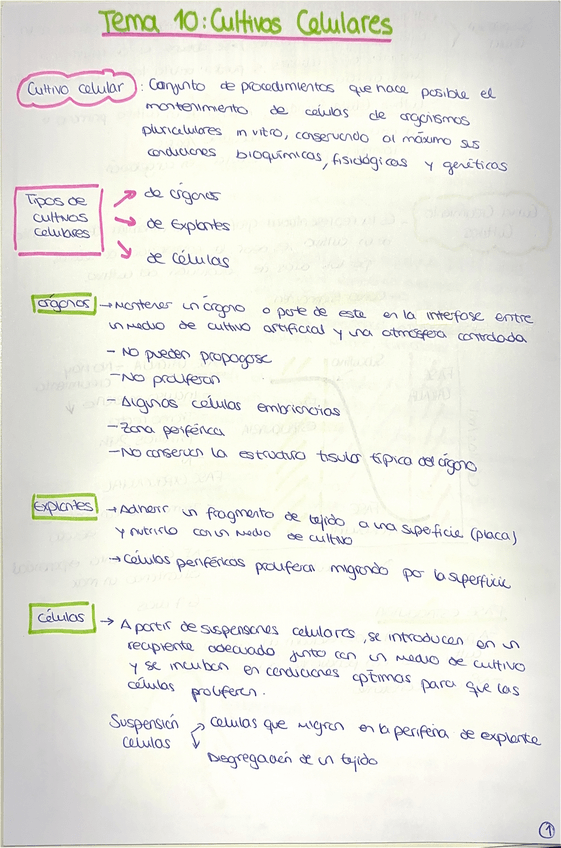 Tema 10: Cultivos Celulares
Cultivo celular : Conjunto de procedimientos que hace posible el
mantenimiento de células de organismos
pluricelulares in vitro, conservando al máximo sus
condiciones bioquímicas, fisiológicas y genéticas
Tipos de
cultivos
celulares
de órganos
de Explantes
de Células
órganos → Mantener un órgano o parte de este en la interfase entre
un medio de cultivo artificial y una atmósfera controlada
- No pueden propagarse
- No proliferan
- Algunas células embrionarias
- Zona periférica
- No conservan la estructura tisular típica del órgano
Explantes → Adherir un fragmento de tejido a una superficie (placa)
y nutrirlo con un medio de cultivo
→ Células periféricas proliferan migrando por la superficie
Células → A partir de suspensiones celulares, se introducen en un
recipiente adecuado junto con un medio de cultivo
y se incuban en condiciones óptimas para que las
células proliferen.
Suspensión
celulas
celulas que migran en la periferia de explante
Disgregación de un tejido
1